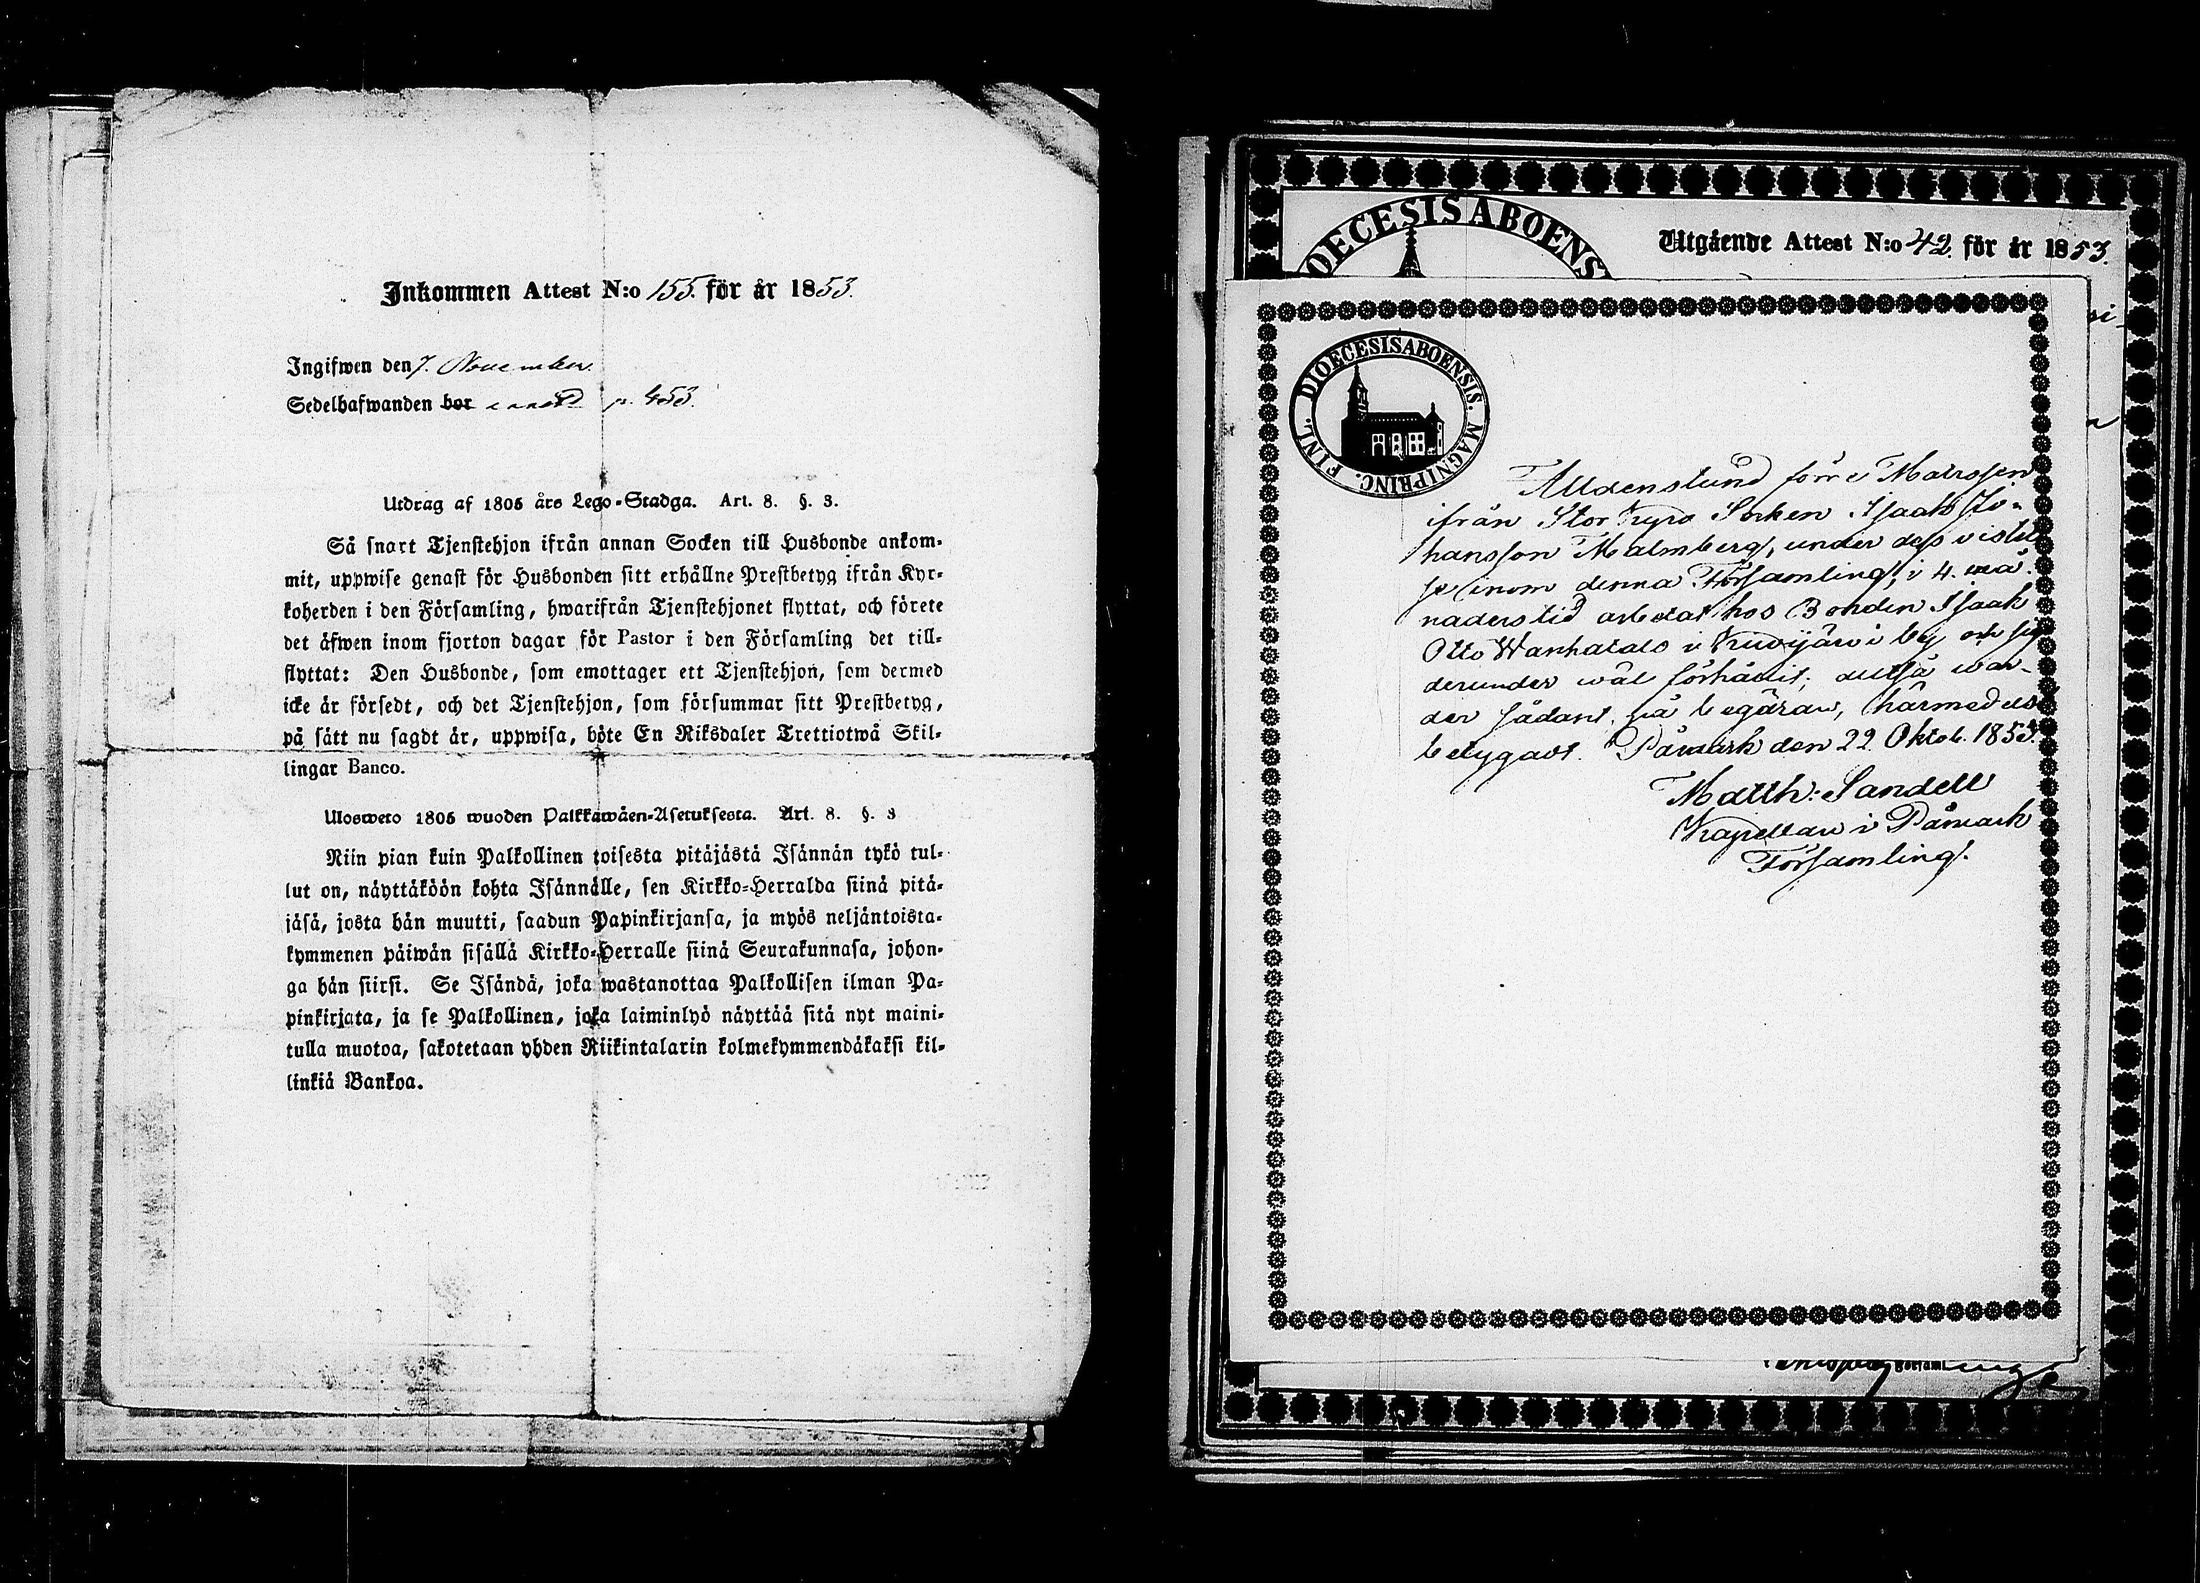 Inkommen Attest N:o 155. för år 1853.
Ingifwen den 7. November.
Sedelhafwanden bor p. 453.
Utdrag af 1805 års Lego-Stadga. Art. 8. §. 3.
Så snart Tjenstehjon ifrån annan Socken till Husbonde ankom-
mit, uppwise genast för Husbonden sitt erhållne Prestbetyg ifrån Kyr-
koherden i den Församling, hwarifrån Tjenstehjonet flyttat, och förete
det äfwen inom fjorton dagar för Pastor i den Församling det till-
flyttat: Den Husbonde, som emottager ett Tjenstehjon, som dermed
icke är försedt, och det Tjenstehjon, som försummar sitt Prestbetyg,
på sätt nu sagdt är, uppwisa, böte En Riksdaler Trettiotwå Skil-
lingar Banco.
Ulosweto 1805 wuoden Palkkawäen-Asetuksesta. Art. 8. §. 3
Niin pian kuin Palkollinen toisesta pitäjästä Isännän tykö tul-
lut on, näyttäköön kohta Isännälle, sen Kirkko-Herralda siinä pitä-
jäsä, josta hän muutti, saadun Papinkirjansa, ja myös neljäntoista-
kymmenen päiwän sisällä Kirkko-Herralle siinä Seurakunnasa, johon-
ga hän siirsi. Se Isändä, joka wastanottaa Palkollisen ilman Pa-
pinkirjata, ja se Palkollinen, joka laiminlyö näyttää sitä nyt maini-
tulla muotoa, sakotetaan yhden Riikintalarin kolmekymmendäkaksi kil-
linkiä Bankoa.
DIOECESIS ABOENS
Utgående Attest N:o 42. för år 1853.
DIOECESIS ABOENSIS. MAGNI PRINC. FINL.
Alldenstund förre Matrossen
ifrån Stor Kyro Socken Isaak Jo-
hansson Malmberg, under dess vistel
se inom denna Församling, i 4. må-
naders tid arbetat hos Bonden Isaak
Otto Wanhatalo i by och sig
derunder wäl förhållit; alltså war-
der sådant, på begäran, härmedelst
betygadt. Påmark den 22 Oktob. 1853.
Matth: Sandell
Kapellan i Påmark
Församling.